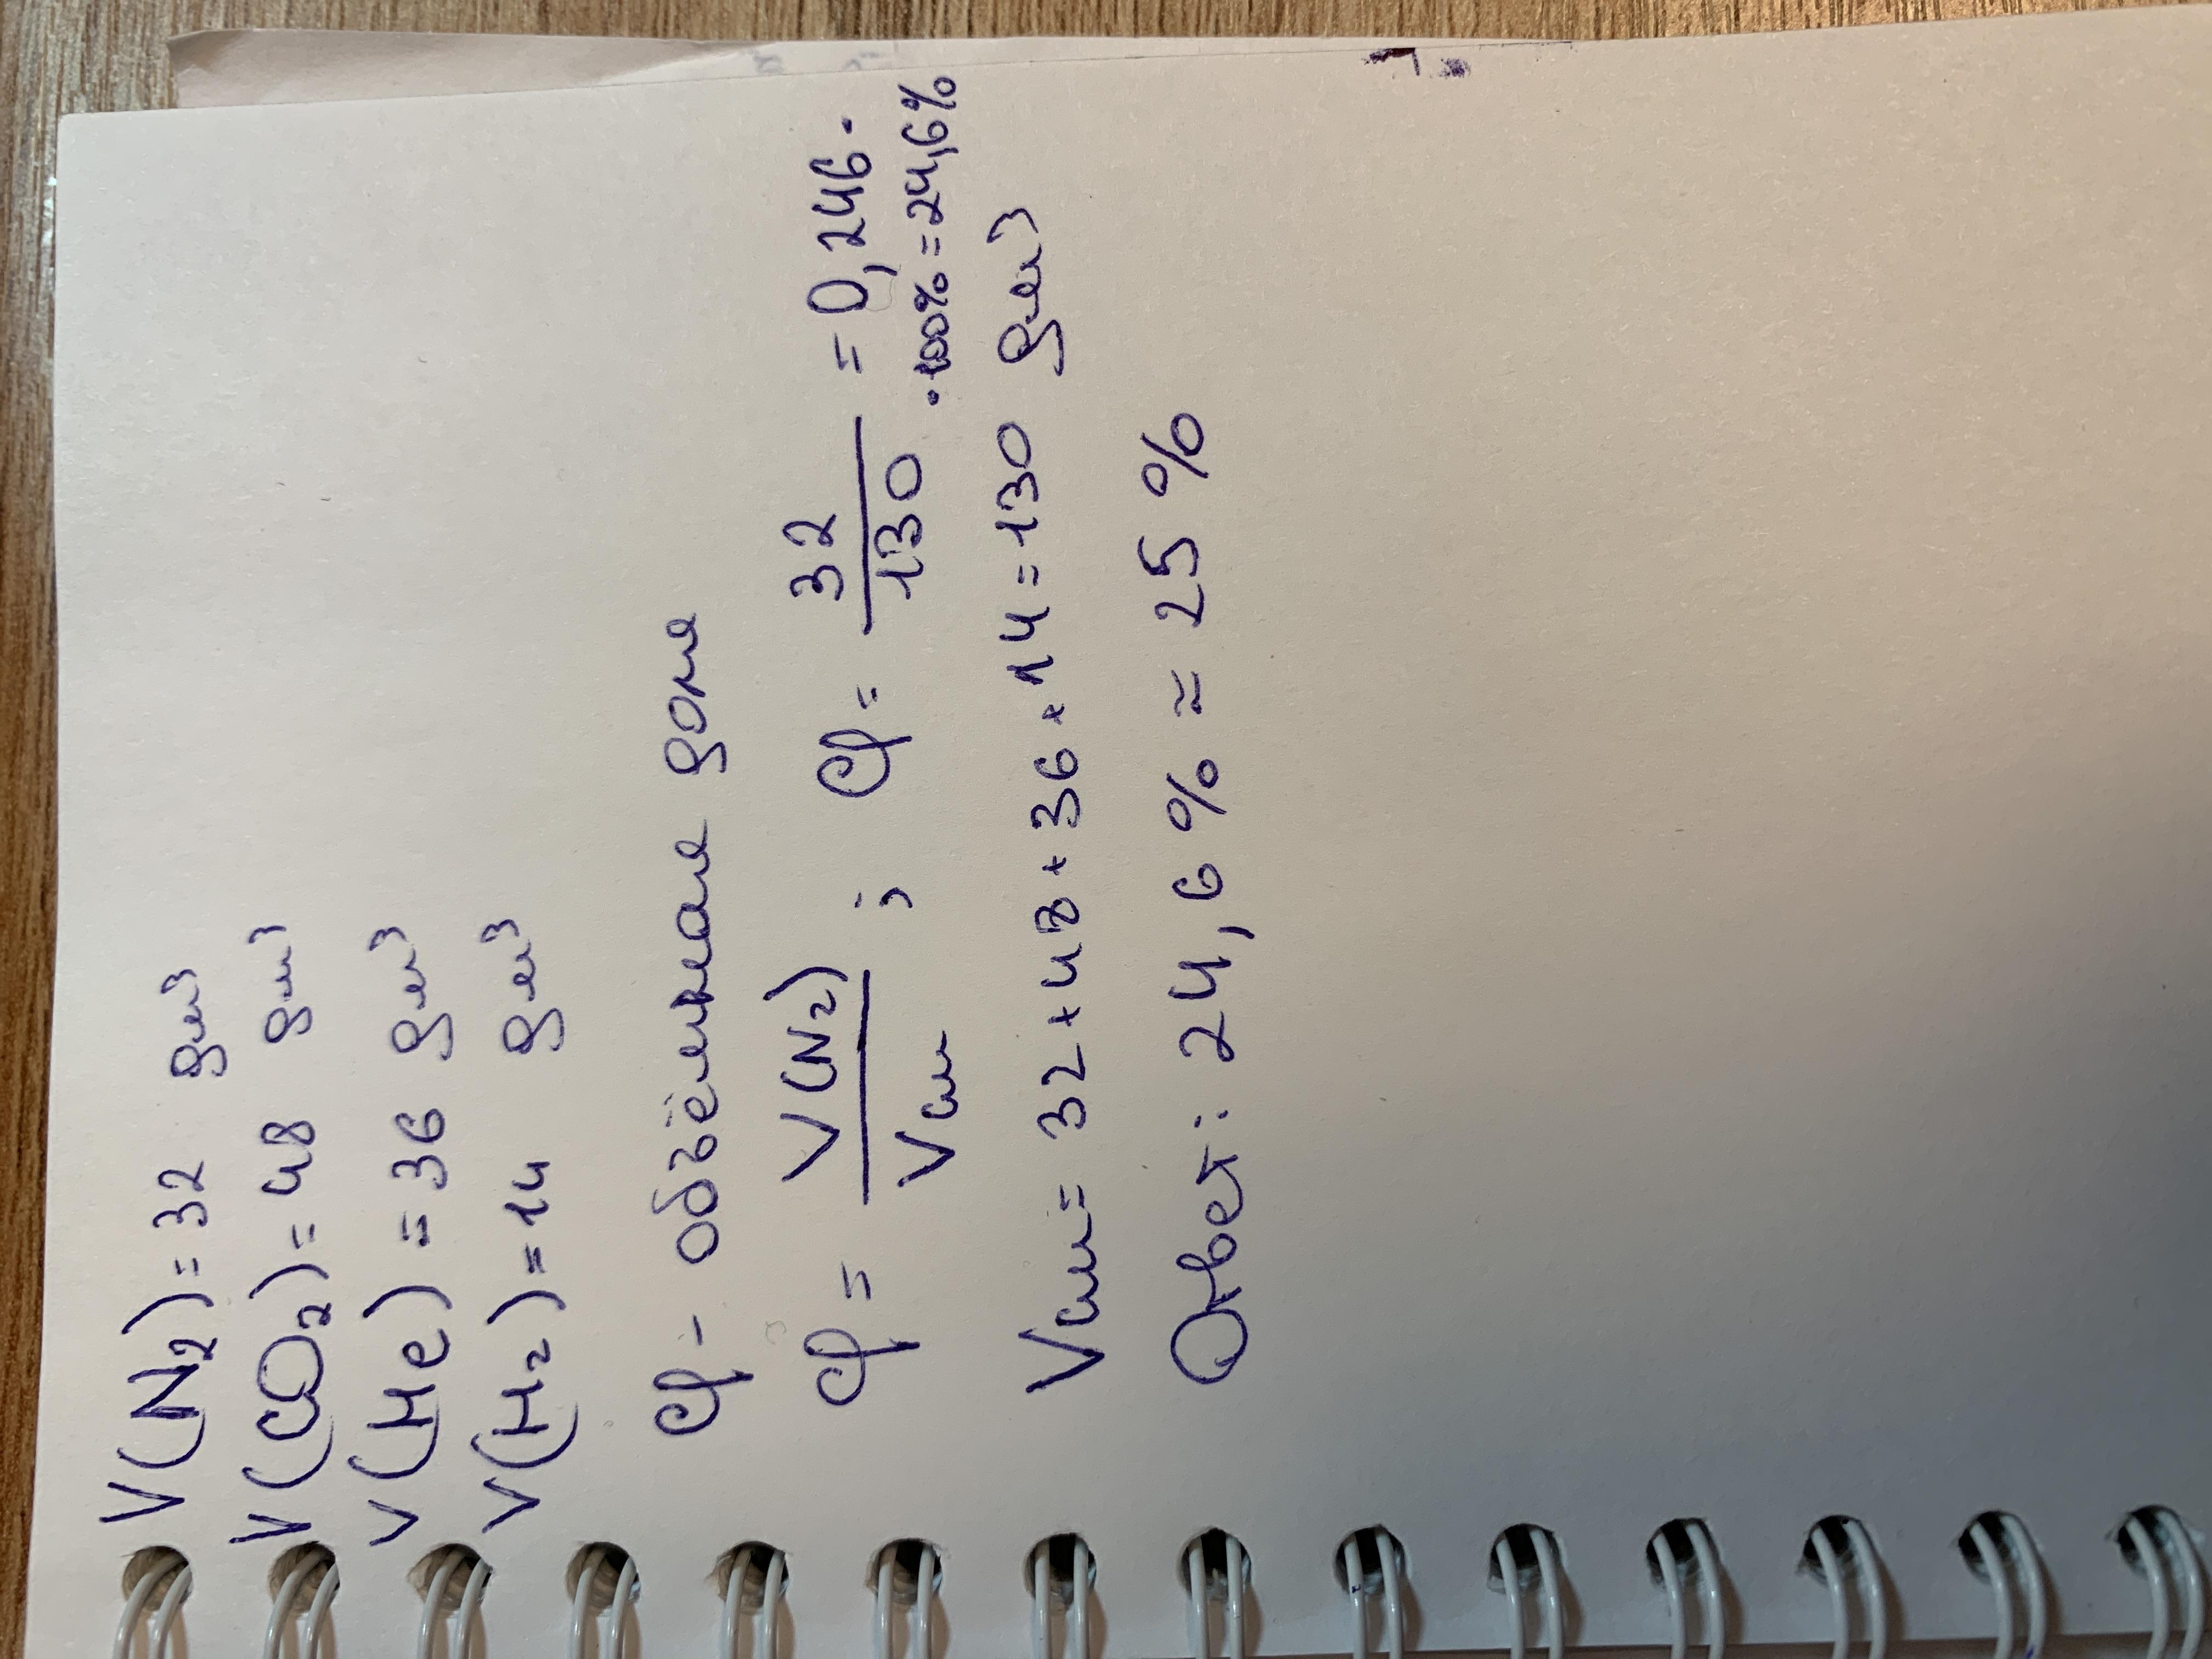 V(N₂)=32 дм³
V(CO₂)=48 дм³
V(He)=36 дм³
V(H₂)=14 дм³
φ- объёмная доля
φ = V(N₂)/Vсм ; φ = 32/130 = 0,246·
·100%=24,6%
Vсм= 32+48+36+14=130 дм³
Ответ: 24,6% ≈ 25%